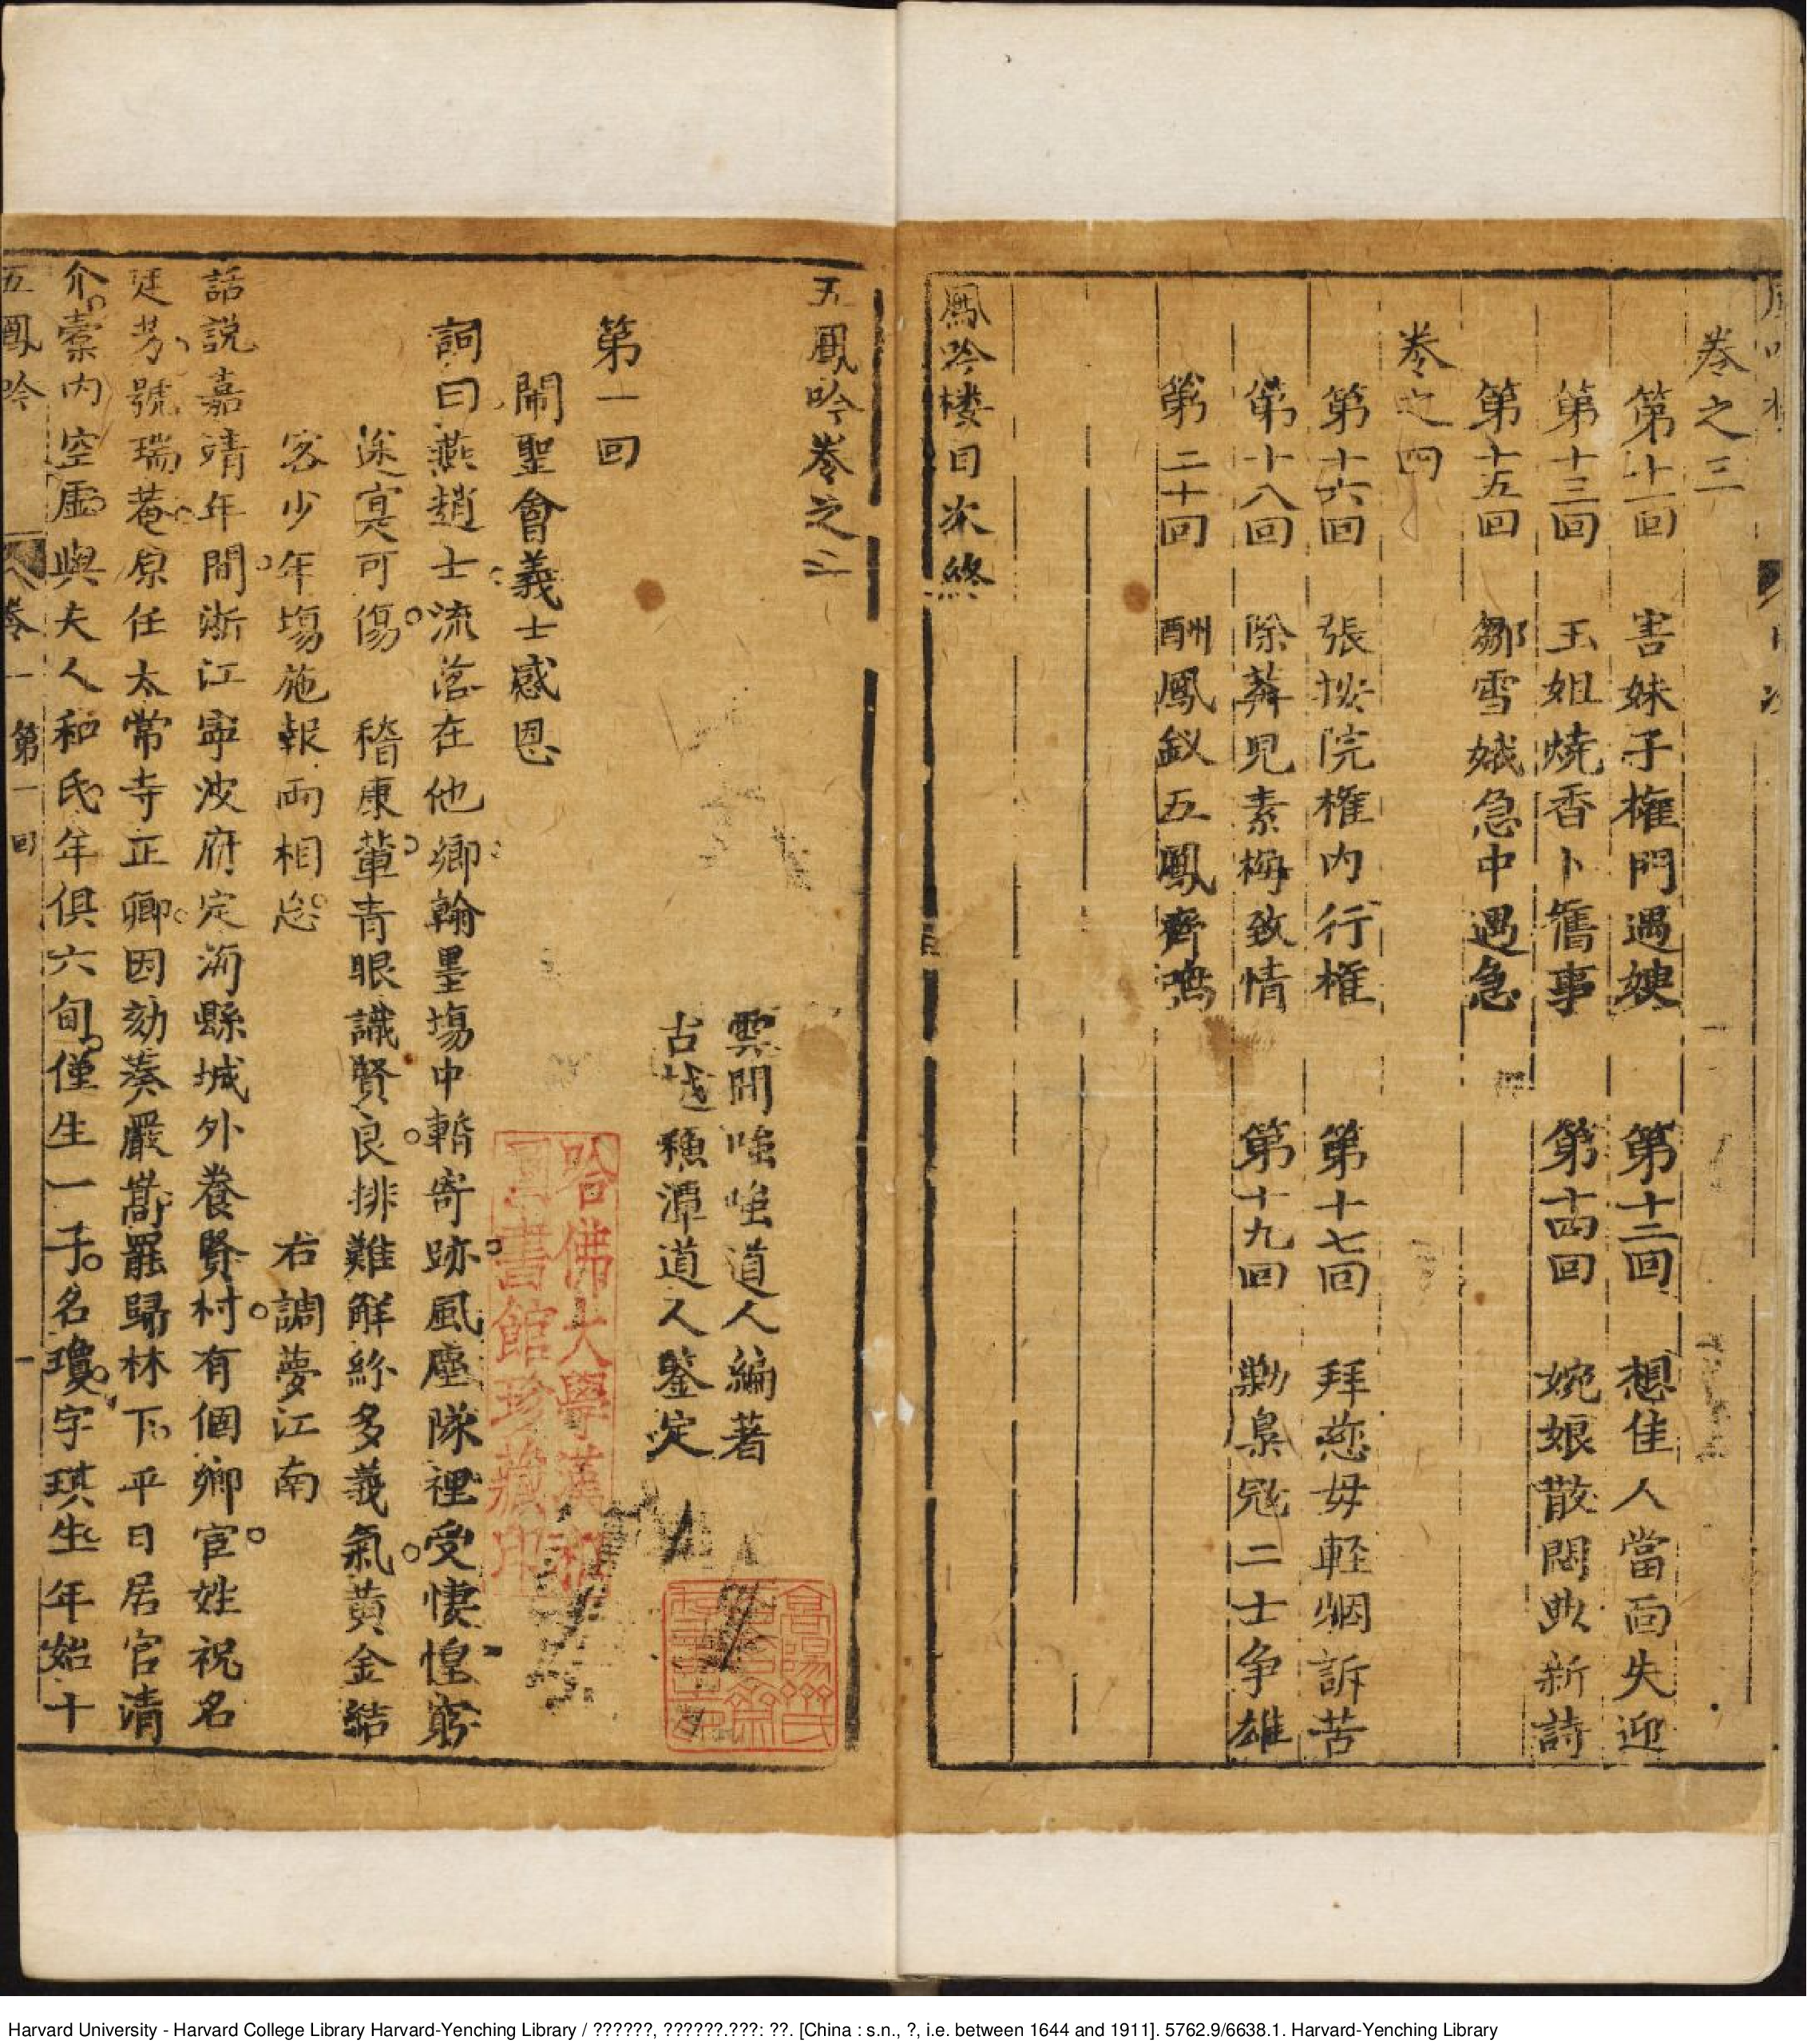 卷之三
第十一回 害妹子權門遇媿
第十二回 想佳人當面失迎
第十三回 玉姐燒香卜舊事
第十四回 婉娘散悶興新詩
第十五回 鄒雪娥急中遇急
卷之四
第十六回 張按院權內行權
第十七回 拜慈母輕烟訴苦
第十八回 除莽兒素梅致情
第十九回 勦梟冦二士争雄
第二十回 酬鳳釵五鳳齊鳴
鳳吟楼目次終
五鳳吟卷之一
雲間嗤嗤道人編著
古越蘓潭道人鑒定
第一回
閙聖會義士感恩
詞曰燕趙士流落在他鄉翰墨塲中輶寄跡風塵隊裡受悽惶窮
途寔可傷 稽康輩青眼識賢良排難觧紛多義氣黃金結
客少年塲施報両相忘 右調夢江南
話説嘉靖年間浙江寧波府定海縣城外養賢村有個鄉宦姓祝名
廷芳號瑞菴原任太常寺正卿因劾奏嚴嵩罷歸林下平日居官清
介橐內空虛與夫人和氏年俱六旬僅生一子名瓊字琪生年始十
五鳳吟 卷一 第一回 一
哈佛大學漢和
圖書館珍藏印